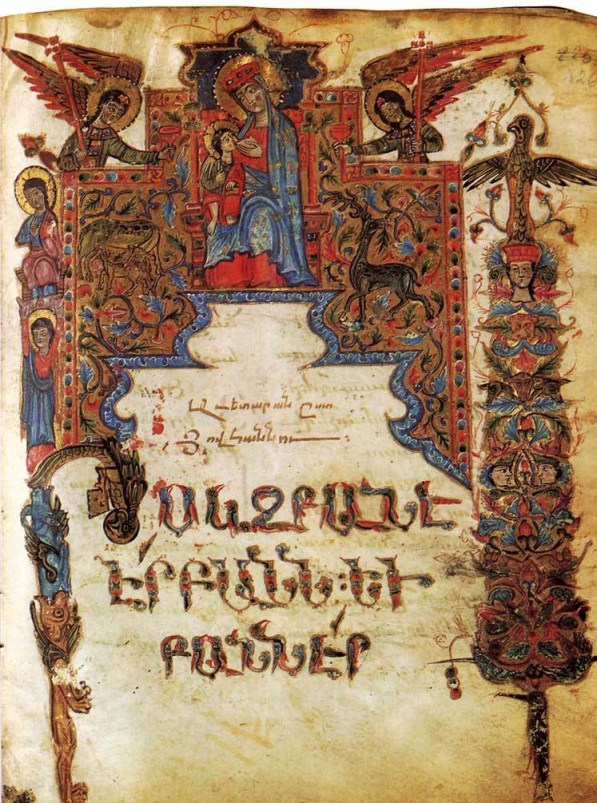 Աւետարան ըստ
Յովհաննու
Ի ՍԿԶԲԱՆԷ
ԷՐ ԲԱՆՆ: ԵՒ
ԲԱՆՆ ԷՐ